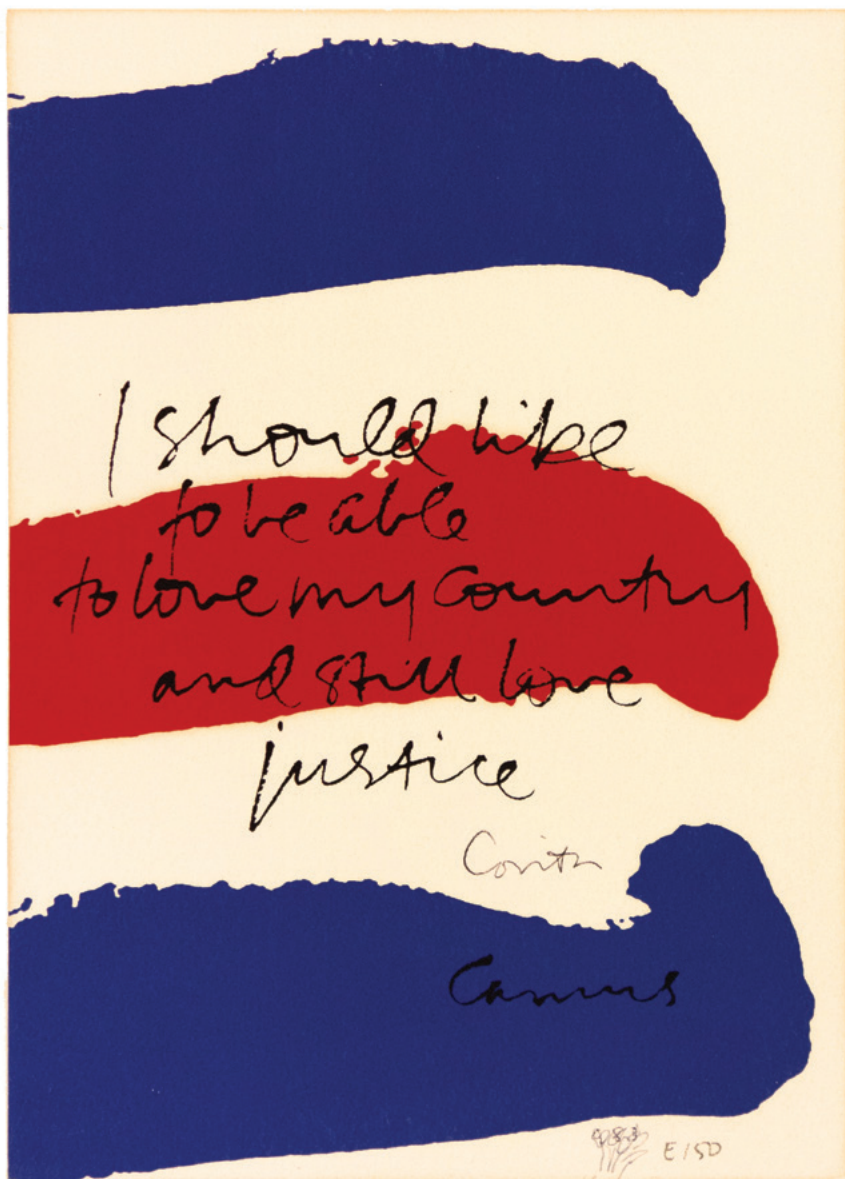 I should like
to be able
to love my country
and still love
justice
Corita
Camus
E/50